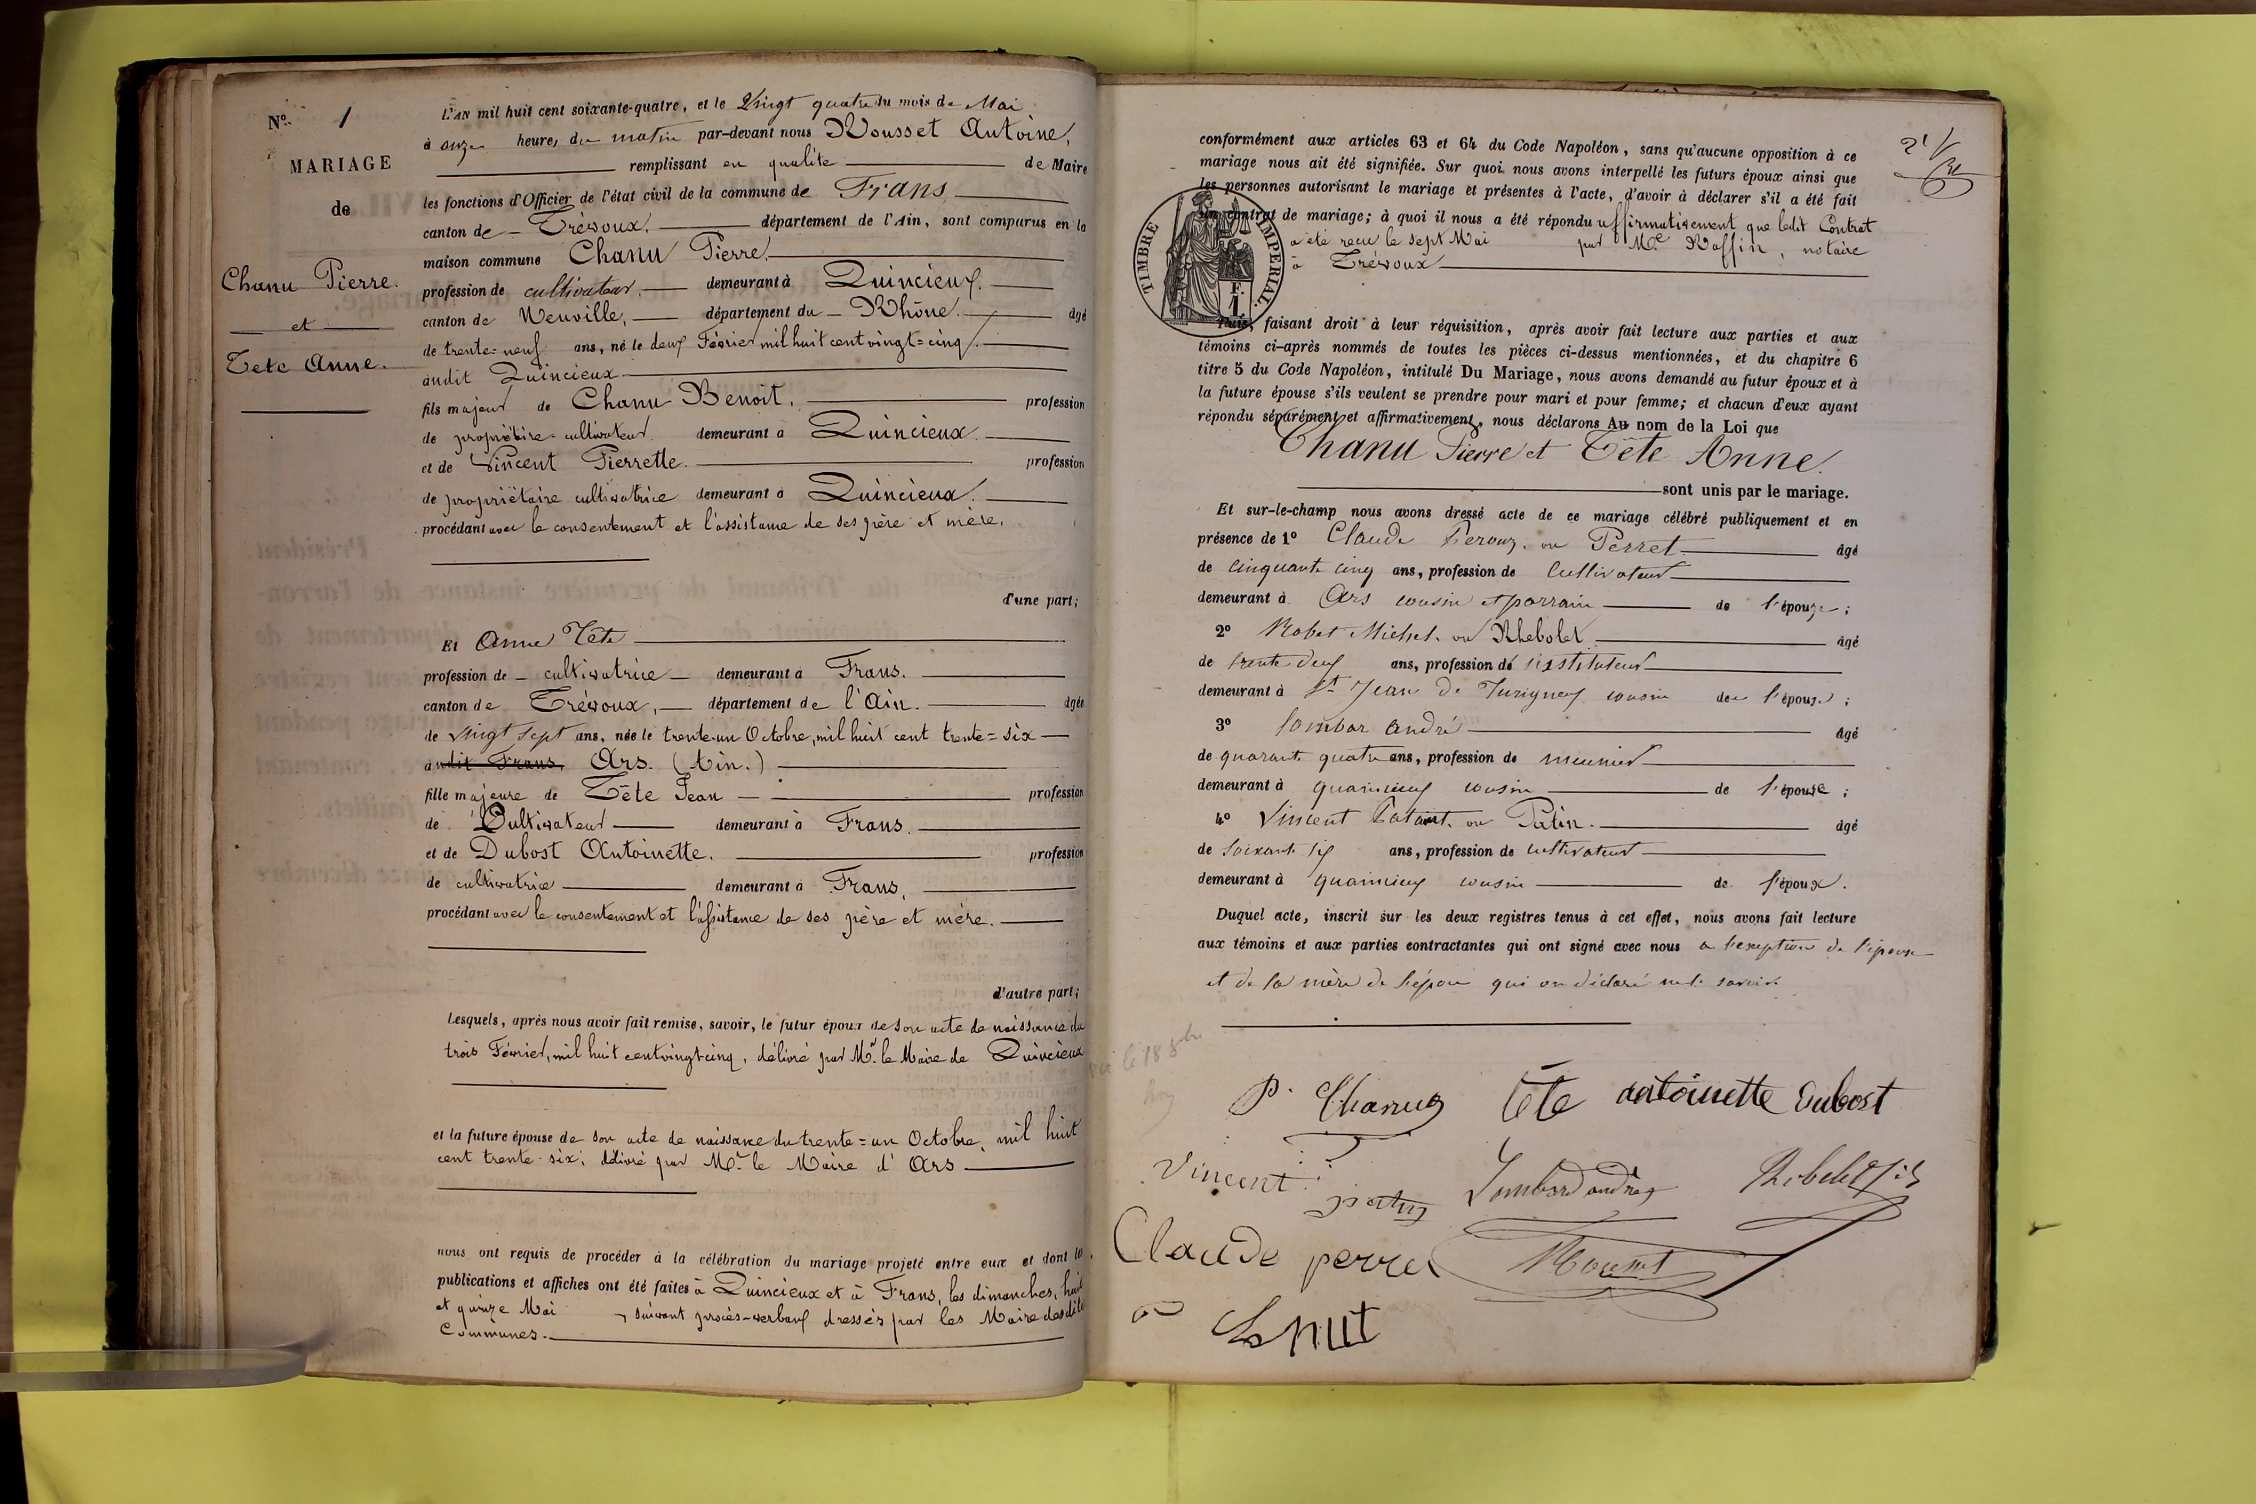 N° 1
MARIAGE
de
Chanu Pierre.
et
Tête Anne.
L'AN mil huit cent soixante-quatre, et le Vingt quatre du mois de Mai
à onze heures du matin par-devant nous Rousset Antoine,
remplissant en qualité de Maire
les fonctions d'Officier de l'état civil de la commune de Frans
canton de Trévoux, département de l'Ain, sont comparus en la
maison commune Chanu Pierre,
profession de cultivateur, demeurant à Quincieux.
canton de Neuville, département du Rhône. âgé
de trente=neuf ans, né le deux Février mil huit cent vingt=cinq,
audit Quincieux
fils majeur de Chanu Benoit, profession
de propriétaire=cultivateur demeurant à Quincieux.
et de Vincent Pierrette. profession
de propriétaire cultivatrice demeurant à Quincieux.
procédant avec le consentement et l'assistance de ses père et mère.
d'une part;
Et Anne Tête
profession de cultivatrice demeurant à Frans.
canton de Trévoux, département de l'Ain. âgée
de vingt sept ans, née le trente-un Octobre, mil huit cent trente=six
audit Frans, Ars. (Ain.)
fille majeure de Tête Jean profession
de Cultivateur demeurant à Frans.
et de Dubost Antoinette. profession
de cultivatrice demeurant à Frans,
procédant avec le consentement et l'assistance de ses père et mère.
d'autre part;
Lesquels, après nous avoir fait remise, savoir, le futur époux de son acte de naissance du
trois Février, mil huit cent vingt-cinq, délivré par Mr. le Maire de Quincieux
et la future épouse de son acte de naissance du trente=un Octobre, mil huit
cent trente-six, délivré par Mr. le Maire d'Ars
nous ont requis de procéder à la célébration du mariage projeté entre eux et dont les
publications et affiches ont été faites à Quincieux et à Frans, les dimanches, huit
et quinze Mai, suivant procès-verbaux dressés par les Maire desdites
Communes.
conformément aux articles 63 et 64 du Code Napoléon, sans qu'aucune opposition à ce
mariage nous ait été signifiée. Sur quoi nous avons interpellé les futurs époux ainsi que
les personnes autorisant le mariage et présentes à l'acte, d'avoir à déclarer s'il a été fait
un contrat de mariage; à quoi il nous a été répondu affirmativement que ledit Contrat
a été recu le sept Mai par Me Raffin, notaire
à Trévoux
TIMBRE IMPERIAL.
F.
1.
Puis, faisant droit à leur réquisition, après avoir fait lecture aux parties et aux
témoins ci-après nommés de toutes les pièces ci-dessus mentionnées, et du chapitre 6
titre 5 du Code Napoléon, intitulé Du Mariage, nous avons demandé au futur époux et à
la future épouse s'ils veulent se prendre pour mari et pour femme; et chacun d'eux ayant
répondu séparément et affirmativement, nous déclarons Au nom de la Loi que
Chanu Pierre et Tête Anne.
sont unis par le mariage.
Et sur-le-champ nous avons dressé acte de ce mariage célébré publiquement et en
présence de 1° Claude ou Perret âgé
de cinquante cinq ans, profession de cultivateur
demeurant à Ars cousin et parrain de l'épouse;
2° Michel ou Rhebolet âgé
de trente deux ans, profession de instituteur
demeurant à St Jean de Turigneux cousin de l'épouse;
3° Lombar andré âgé
de quarante quatre ans, profession de meunier
demeurant à quaincieux cousin de l'épouse;
4° Vincent ou Patin. âgé
de soixante six ans, profession de cultivateur
demeurant à quaincieux cousin de l'époux.
Duquel acte, inscrit sur les deux registres tenus à cet effet, nous avons fait lecture
aux témoins et aux parties contractantes qui ont signé avec nous a l'exception de l'épouse
et de la mère de l'épou qui on déclaré ne le savoir
P. Chanu Tête antoinette Dubost
Vincent patin Lombard andré Rebolet fils
Claude perret Rousset